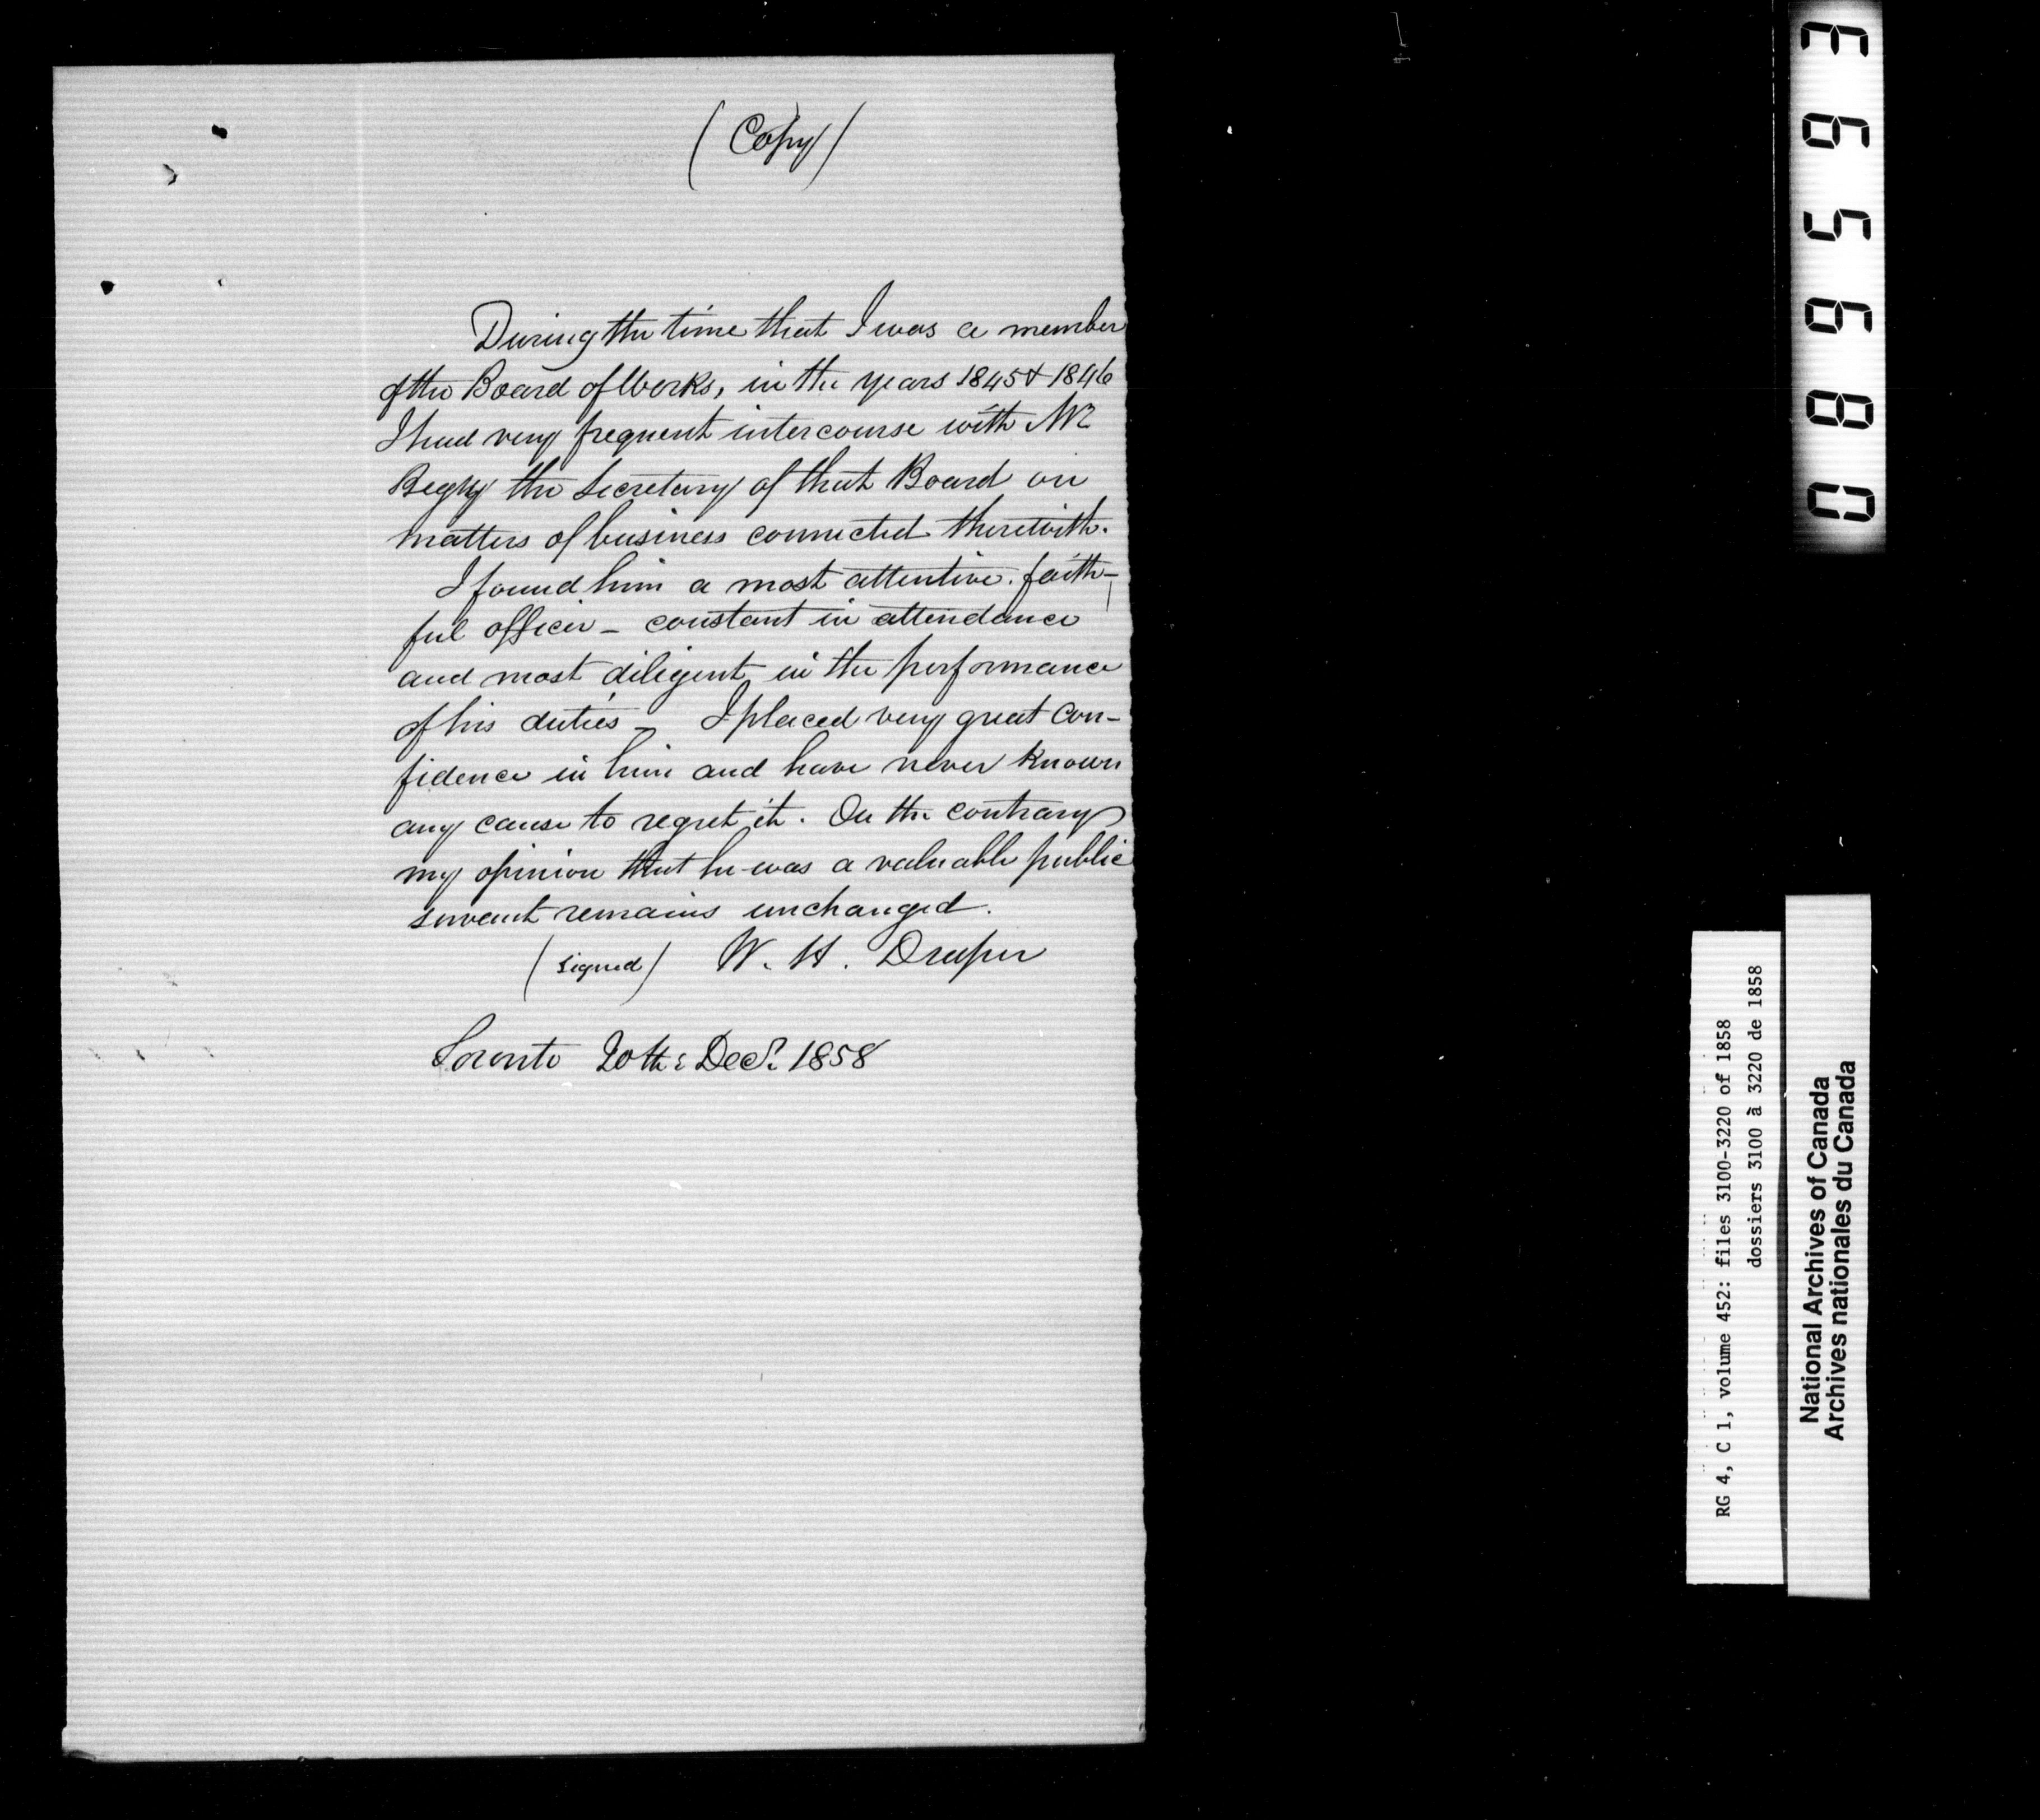 (Copy)
During the time that I was a member
of the Board of Works, in the years 1845 & 1846
I had very frequent intercourse with Mr
Begly the Secretary of that Board on
matters of business connected therewith.
I found him a most attentive. faith-
ful officer - constant in attendance
and most diligent in the performance
of his duties - I placed very great con-
fidence in him and have never known
any cause to regret it. On the contrary
my opinion that he was a valuable public
servant remains unchanged.
(signed) W. H. Draper
Toronto 20th: Decr. 1858
E69580
RG 4, C 1, volume 452: files 3100-3220 of 1858
dossiers 3100 à 3220 de 1858
National Archives of Canada
Archives nationales du Canada